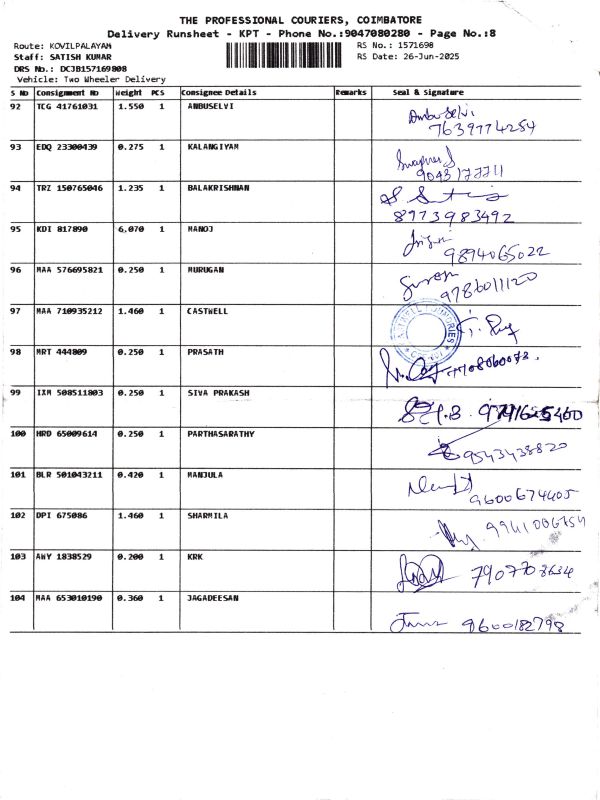 THE PROFESSIONAL COURIERS, COIMBATORE
Delivery Runsheet - KPT - Phone No.:9047080280 - Page No.:8
Route: KOVILPALAYAM RS No.: 1571690
Staff: SATISH KUMAR RS Date: 26-Jun-2025
DRS No.: DCJB157169808
Vehicle: Two Wheeler Delivery
S No Consignment No Weight PCS Consignee Details Remarks Seal & Signature
92 TCG 41761031 1.550 1 ANBUSELVI Anbu Selvi
7639774254
93 EDQ 23300439 0.275 1 KALANGIYAM
94 TRZ 150765046 1.235 1 BALAKRISHNAN
8973983492
95 KDI 817890 6,070 1 MANOJ
9894065022
96 MAA 576695821 0.250 1 MURUGAN
9786011120
97 MAA 710935212 1.460 1 CASTWELL
98 MRT 444809 0.250 1 PRASATH
99 IXM 508511803 0.250 1 SIVA PRAKASH
100 HRD 65009614 0.250 1 PARTHASARATHY
9543438820
101 BLR 501043211 0.420 1 MANJULA
9600674405
102 DPI 675086 1.460 1 SHARMILA
103 AWY 1838529 0.200 1 KRK
104 MAA 653010190 0.360 1 JAGADEESAN
9600182798